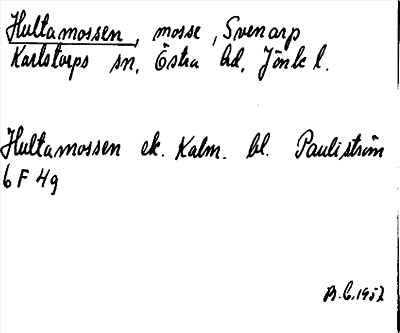 Hultamossen, mosse, Svenarp
Karlstorps sn, Östra hd, Jönk l.
Hultamossen ek. Kalm. bl. Pauliström
6 F 4g
B.C. 1957